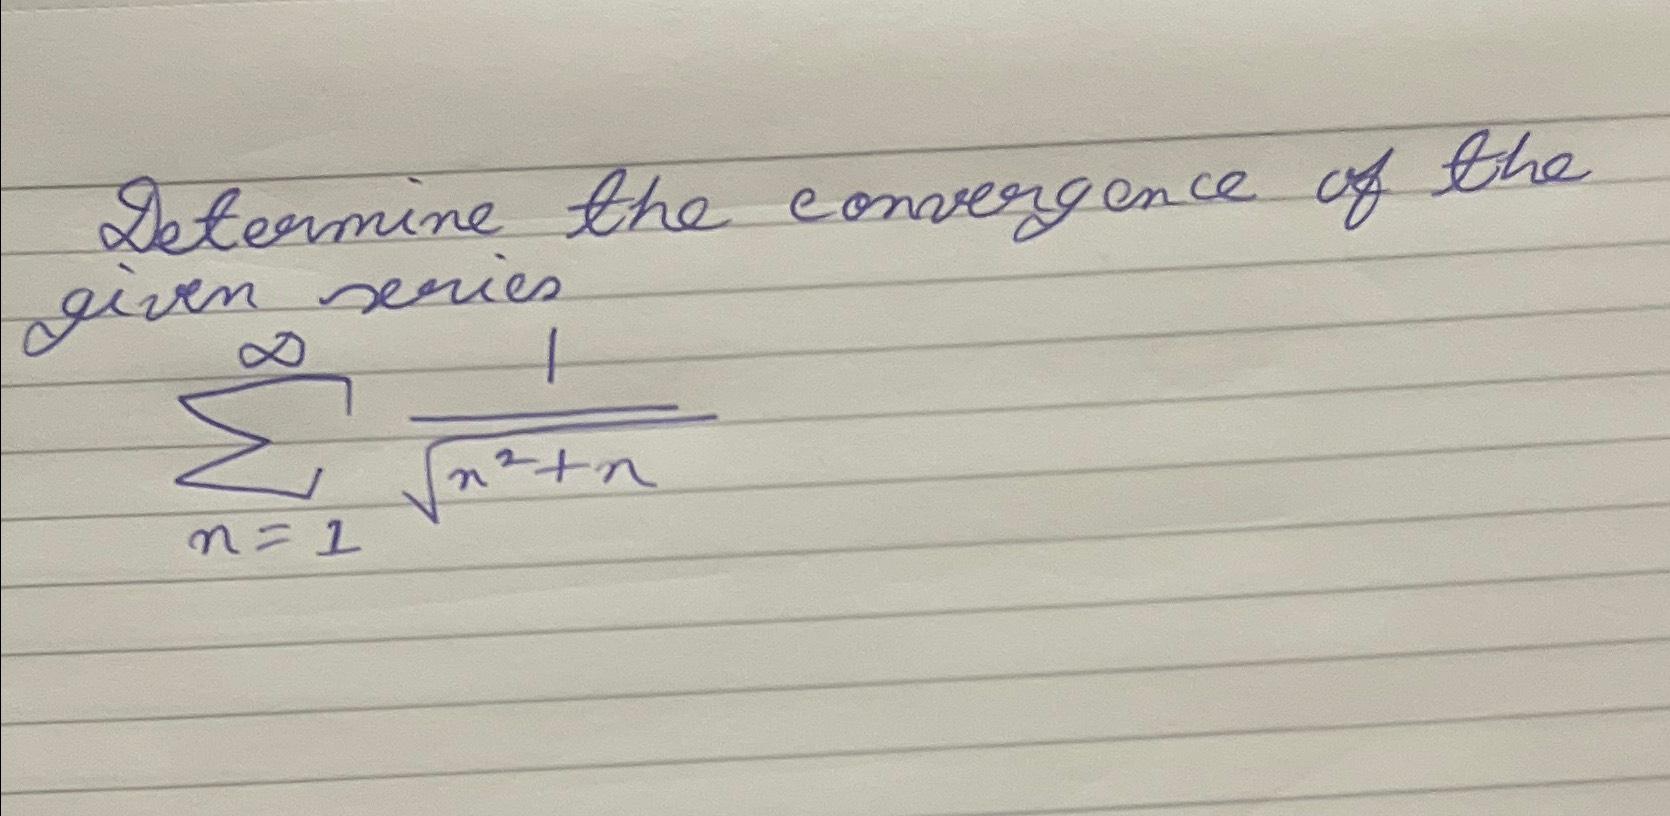 Determine the convergence of the
given series
∞
∑ 1/√(n²+n)
n=1